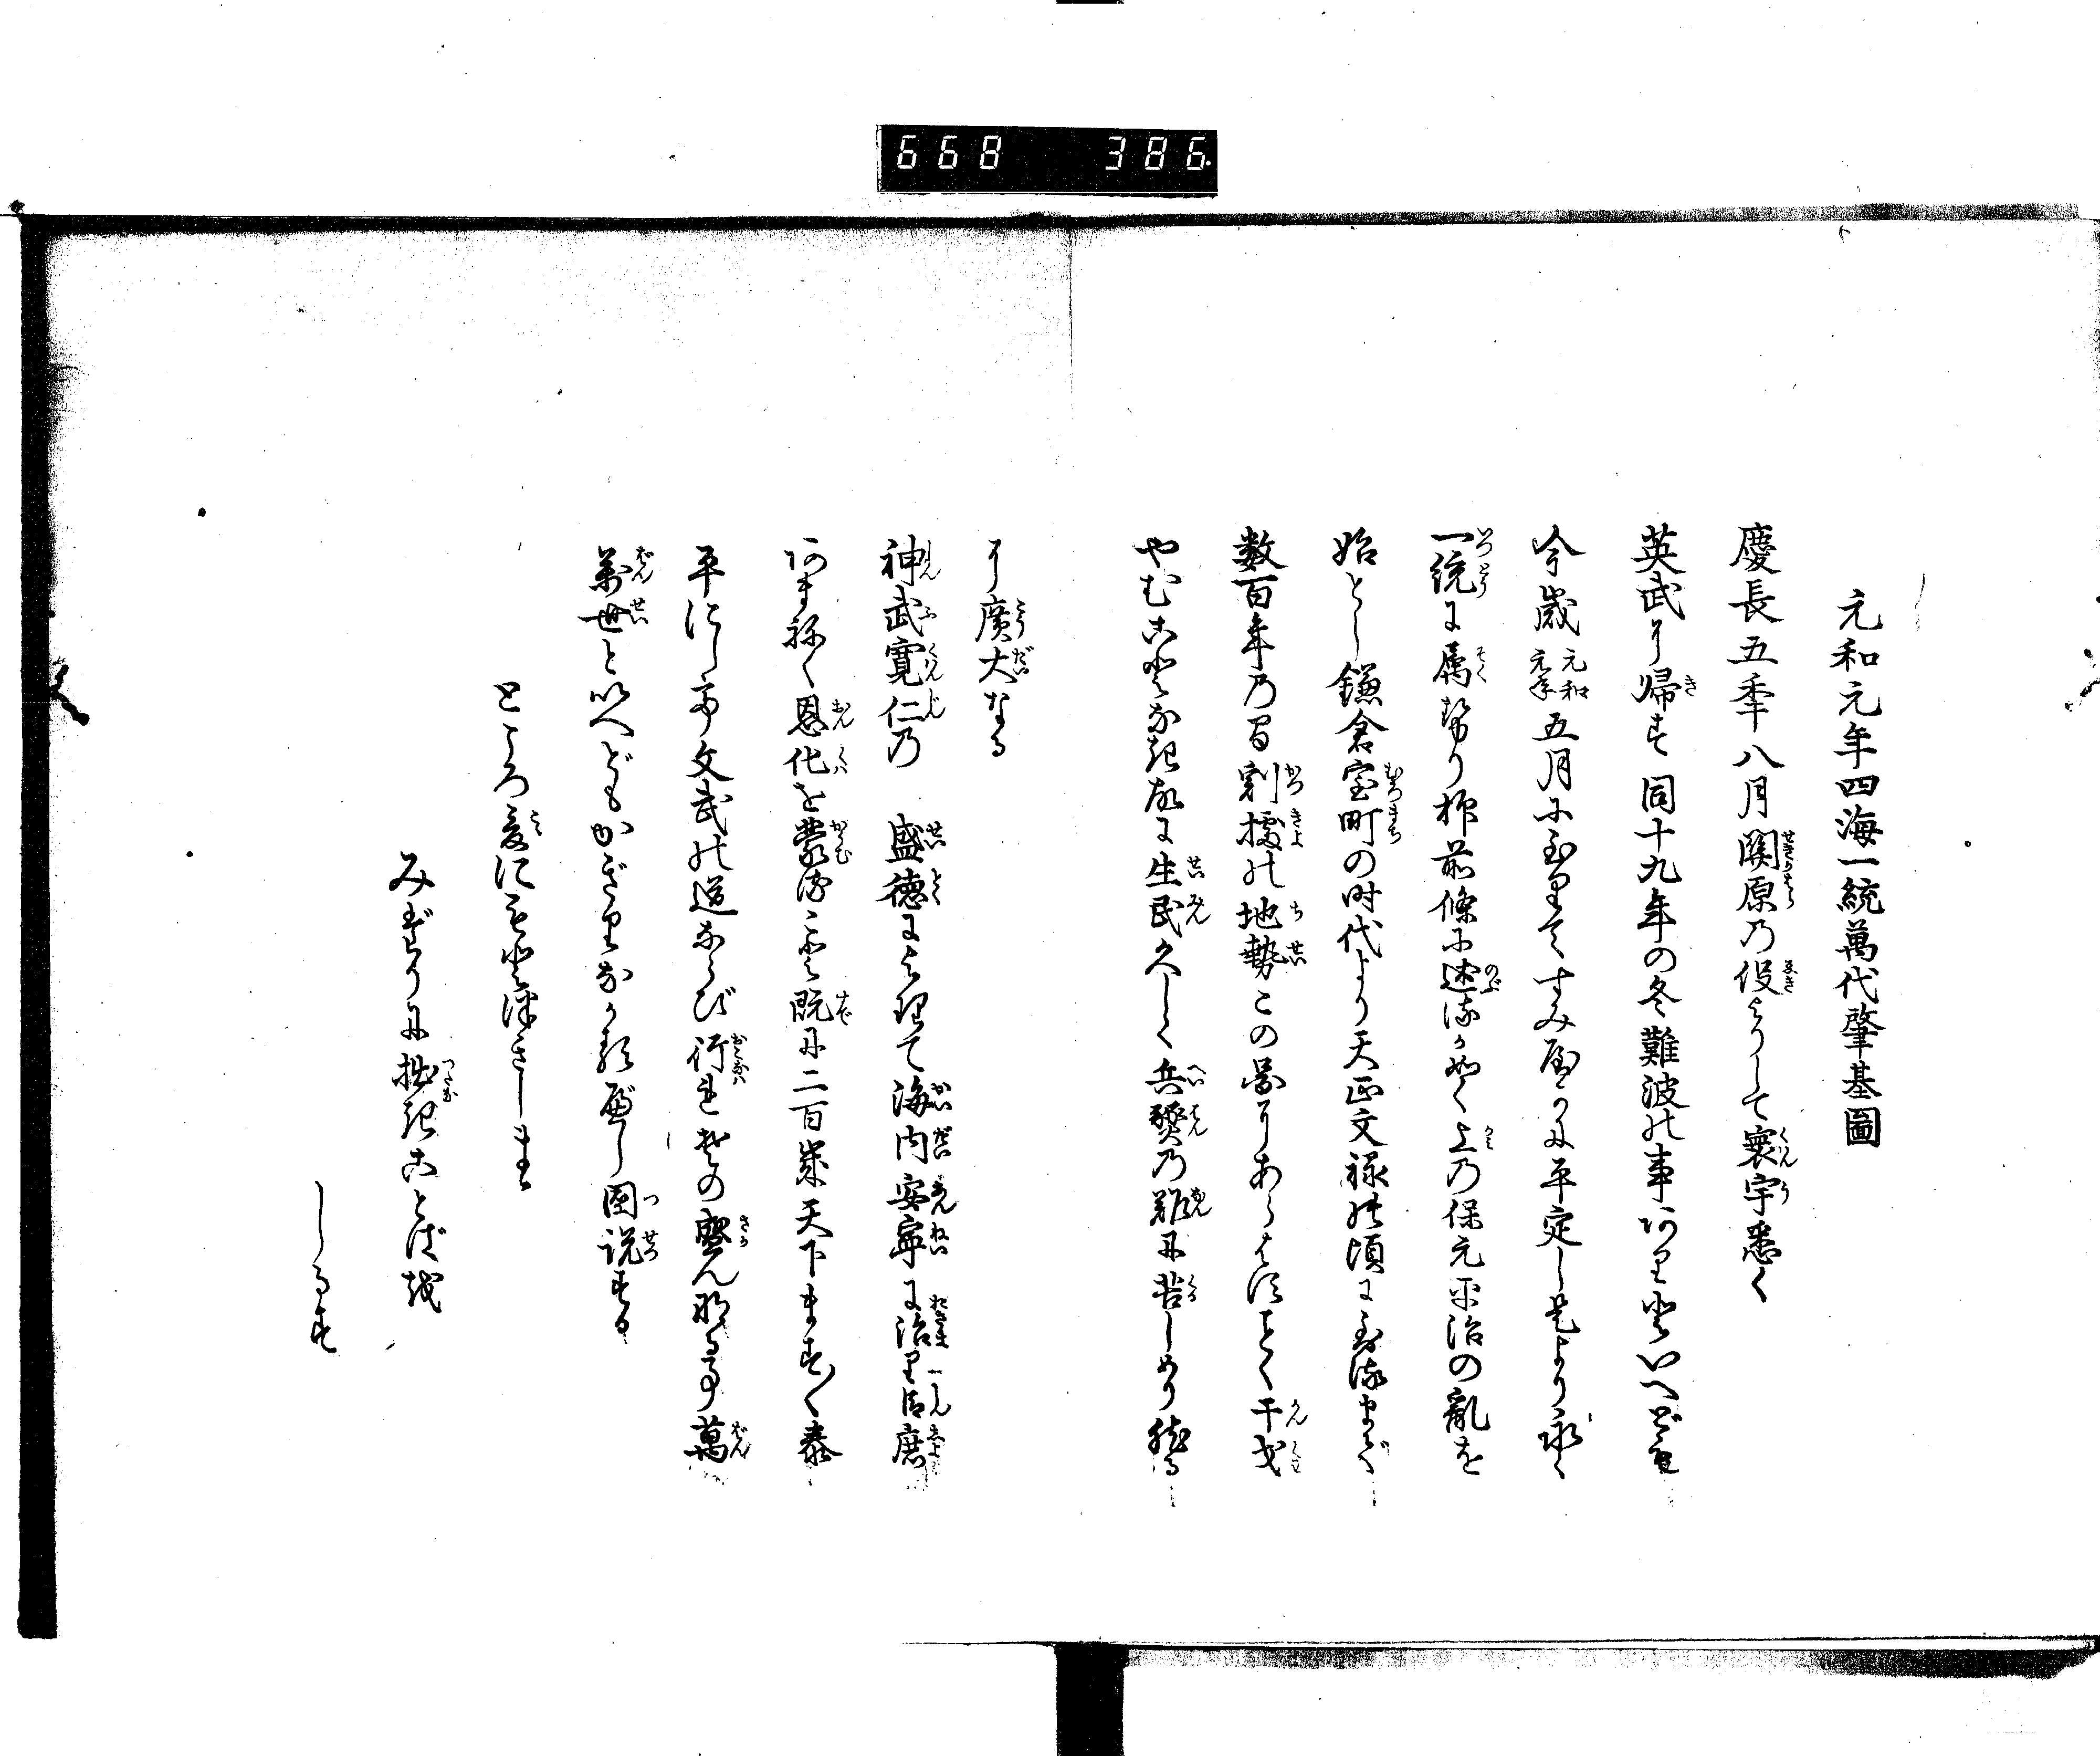 668 386
元和元年四海一統萬代肇基圖
慶長五年八月関原乃役よりして寰宇悉く
英武に帰す同十九年の冬難波の事ありといへども
今歳元和元年五月に至りてすみやかに平定し是より永く
一統に属せり抑前條に述るか如く上乃保元平治の亂を
始とし鎌倉室町の时代より天正文禄の頃に至るまで
数百年乃間割據の地勢この図にあらはすごとく干戈
やむことなき故に生民久しく兵燹乃難に苦しめり然る
に廣大なる
神武寛仁乃　盛徳によりて海内安寧に治り士庶
あまねく恩化を蒙ること既に二百歳天下ますます泰
平にして文武の道ならび行れその盛んなる事萬
萬世といへどもかぎりなかるべし図説する
ところ爰にとどまりしまゝ
みだりに拙きことばを
しるす